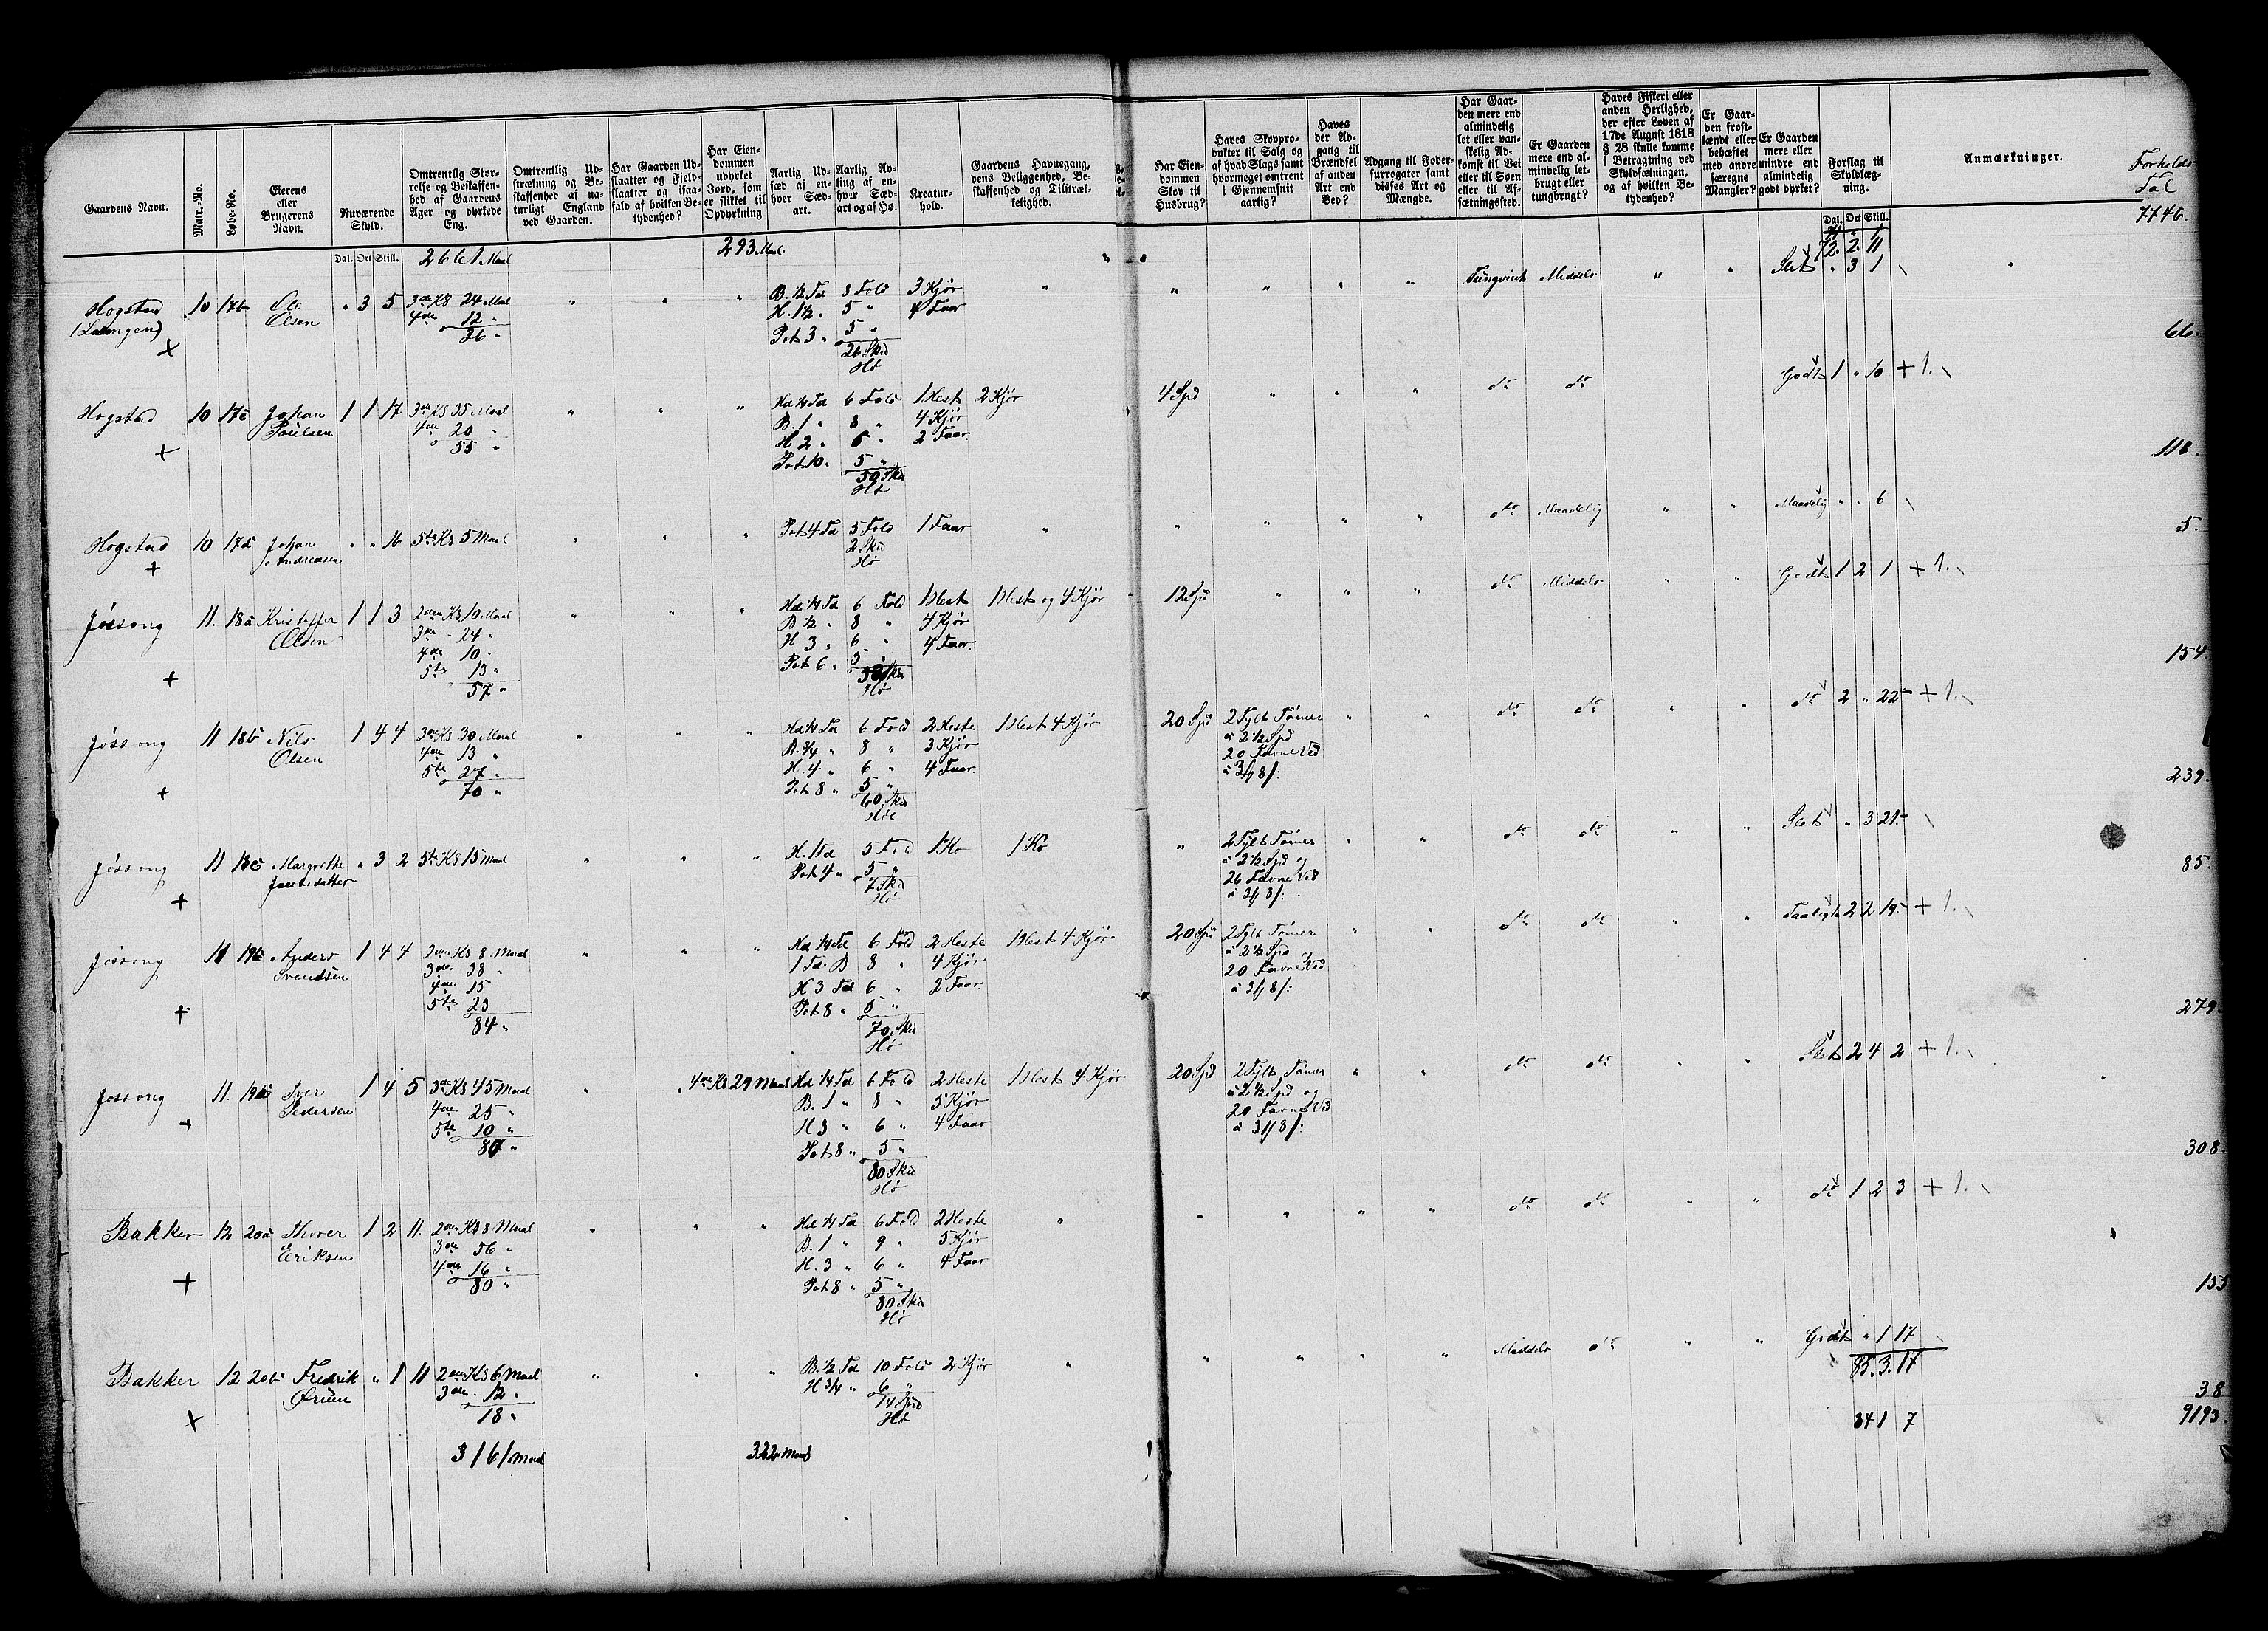 Gaardens Navn.
Matr.-No.
Løbe-No.
Eierens eller Brugerens Navn.
Nuværende Skyld.
Omtrentlig Størrelse og Beskaffenhed af Gaardens Ager og dyrkede Eng.
Omtrentlig Udstrækning og Beskaffenhed af naturligt England ved Gaarden.
Har Gaarden Udslaatter og Fjeldslaatter og isaafald af hvilken Betydenhed?
Har Eiendommen udyrket Jord, som er skikket til Opdyrkning
Aarlig Udsæd af enhver Sædart.
Aarlig Avling af enhver Sædart og af Hø.
Kreaturhold.
Gaardens Havnegang, dens Beliggenhed, Beskaffenhed og Tilstrækkelighed.
Har Eiendommen Skov til Husbrug?
Haves Skovprodukter til Salg og af hvad Slags samt hvormeget omtrent i Gjennemsnit aarlig?
Haves der Adgang til Brændsel af anden Art end Ved?
Adgang til Fodersurrogater samt disses Art og Mængde.
Har Gaarden mere end almindelig let eller vanskelig Adkomst til Vei eller til Søen eller til Afsætningssted.
Er Gaarden mere end almindelig letbrugt eller tungbrugt?
Haves Fiskeri eller anden Herlighed, der efter Loven af 17de August 1818 § 28 skulle komme i Betragtning ved Skyldsætningen, og af hvilken Betydenhed?
Er Gaarden frostlændt eller behæftet med andre særegne Mangler?
Er Gaarden mere eller mindre end almindelig godt dyrket?
Forslag til Skyldlægning.
Anmærkninger.
Forholds Tal
Dal. Ort Skill.
2661 Maal
293 Maal
Dal. Ort Skill.
72. 2. 11
7746.
Hogstad 10 17b Ole Olsen " 3 5 3die Kl 24 Maal " " " B. 1/2 Td 8 Fold 3 Kjør " " " " " Tungvint Middels " " Slet " 3 1
4de 12 "
36 "
H. 1 1/2 " 5 " 4 Faar
Pot 3 " 5 "
26 Skd Hø
66.
Hogstad 10 17c Johan Poulsen 1 1 17 3die Kl 35 Maal " " " Hd 1/4 Td 6 Fold 1 Hest 2 Kjør 4 Spd " " " do do Godt 1 " 10 + 1.
4de 20 "
55 "
B. 1 " 8 " 4 Kjør
H 2 " 6 " 2 Faar
Pot 10 " 5 "
50 Skd Hø
118.
Hogstad 10 17d Johan Andreasen " " 16 5te Kl 5 Maal " " " Pot 4 Td 5 Fold 1 Faar " " " " " do Maadelig " " Maadelig " " 6
2 Skd Hø
5.
Jössong 11. 18a Kristoffer Olsen 1 1 3 2den Kl 10 Maal " " " Hd 1/4 Td 6 Fold 1 Hest 1 Hest og 4 Kjør 12 Spd " " " do Middels " " Godt 1 2 1 + 1.
3die 24 "
4de 10 "
5te 13 "
57 "
B 1/2 " 8 " 4 Kjør
H 3 " 6 " 4 Faar
Pot 6 " 5 "
Skd Hø
154.
Jössong 11 18b Nils Olsen 1 4 4 3die Kl 30 Maal " " " Hd 1/4 Td 6 Fold 2 Heste 1 Hest 4 Kjør 20 Spd 2 Tylt Tömer " " do do " " do 2 " 22 + 1.
4de 13 "
5te 27 "
70 "
B. 3/4 " 8 " 3 Kjør
H. 4 " 6 " 4 Faar.
Pot 8 " 5 "
60 Skd
à 2 1/2 Spd
20 Favne Ved
239.
Jössong 11 18c Margrethe " 3 2 5te Kl 15 Maal " " " H. 1 Td 5 Fold 1 Ko 1 Ko " 2 Tylt Tömer " " do do " " Slet " 3 21
Pot 4 " 5 "
7 Skd Hø
à 2 1/2 Spd og
26 Favne Ved
85.
Jössong 11 19a Anders Svendsen 1 4 4 2den Kl 8 Maal " " " Hd 1/4 Td 6 Fold 2 Heste 1 Hest 4 Kjør 20 Spd 2 Tylt Tömer " " do do " " Taalig 2 2 19 + 1.
3die 38 "
4de 15
5te 23
84 "
1 Td B 8 " 4 Kjør
H 3 Td 6 " 2 Faar
Pot 8 " 5 "
70 Skd Hø
à 2 1/2 Spd
20 Favne Ved
279.
Jössong 11. 19b Iver Pedersen 1 4 5 3die Kl 45 Maal " " 4de Kl 29 Maal Hd 1/4 Td 6 Fold 2 Heste 1 Hest 4 Kjør 20 Spd 2 Tylt Tömer " " do do " " Slet 2 4 2 + 1.
4de 25 "
5te 10 "
80 "
B. 1 " 8 " 5 Kjør
H 3 " 6 " 4 Faar
Pot 8 " 5 "
80 Skd Hø
à 2 1/2 Spd og
20 Favne Ved
308.
Bakker 12 20a Thorer Eriksen 1 2 11. 2den Kl 8 Maal " " " Hd 1/4 Td 6 Fold 2 Heste " " " " " do do " " do 1 2 3 + 1.
3die 56 "
4de 16 "
80 "
B. 1 " 9 " 5 Kjør
H. 3 " 6 " 4 Faar
Pot 8 " 5 "
80 Skd Hø
155
Bakker 12 20b Fredrik " 1 11 2den Kl 6 Maal " " " B. 1/2 Td 10 Fold 2 Kjør " " " " " Middels do " " Godt " 1 17
3die 12 "
18 "
H 3/4 " 6 "
14 Skd Hø
85. 3. 17
38
84 1 7
9193.
3161 Maal
322 Maal